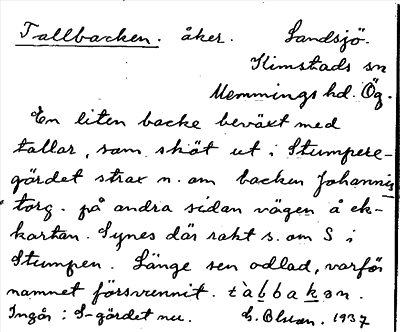 Tallbacken. åker. Landsjö.
Kimstads sn
Memmings hd. Ög.
En liten backe beväxt med
tallar, som sköt ut i Stumpere-
gärdet strax n. om backen Johannis
torg. på andra sidan vägen å ek-
kartan. Synes där rakt s. om S i
Stumpen. Länge sen odlad, varför
namnet försvunnit. tàbbakən.
Ingår i S-gärdet nu. 1937